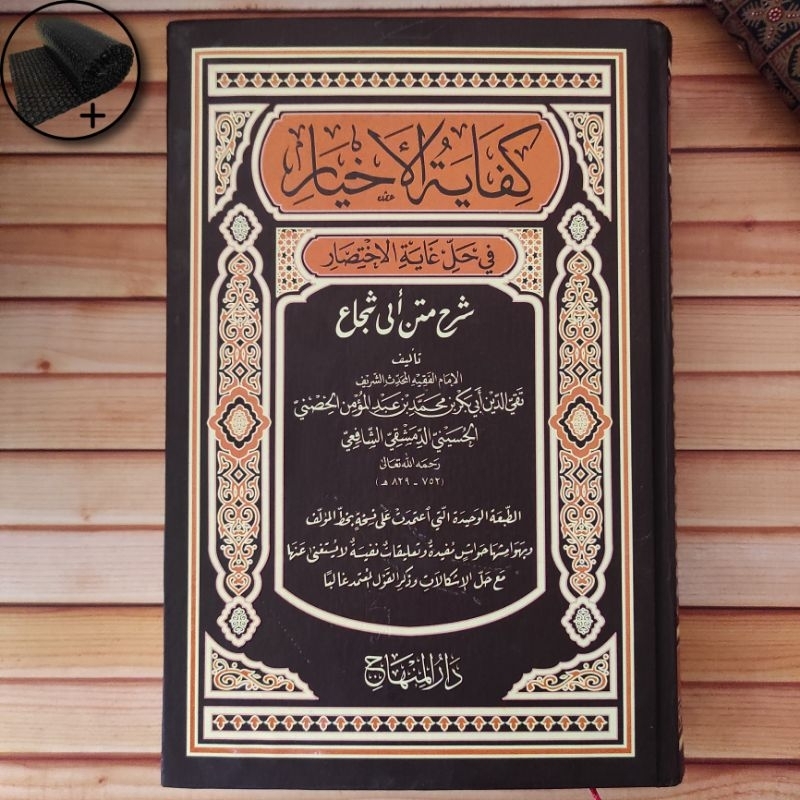 كِفَايَةُ الأَخْيَارِ
فِي حَلِّ غَايَةِ الاخْتِصَارِ
شرح متن أبي شجاع
تأليف
الإمام الفقيه المحدث الشريف
تقي الدين أبي بكر بن محمد بن عبد المؤمن الحصني
الحسيني الدمشقي الشافعي
رحمه الله تعالى
(٧٥٢ - ٨٢٩ هـ)
الطبعة الوحيدة التي اعتمدت على نسخة بخط المؤلف
وبهوامشها حواش مفيدة وتعليقات نفيسة لا يستغنى عنها
مع حل الإشكالات وذكر القول المعتمد غالبًا
دار المنهاج